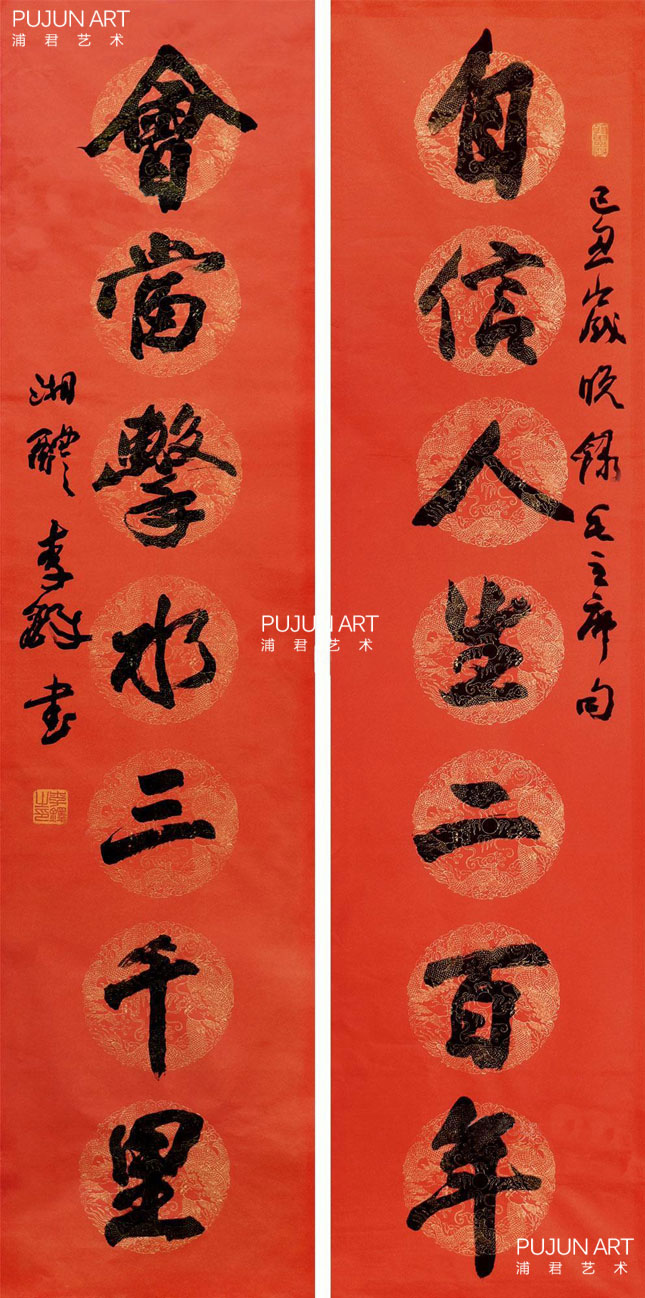 PUJUN ART
浦君艺术
自信人生二百年
己丑岁晚録毛主席句
會當擊水三千里
湘醴李鐸书
李鐸之印
PUJUN ART
浦君艺术
PUJUN ART
浦君艺术